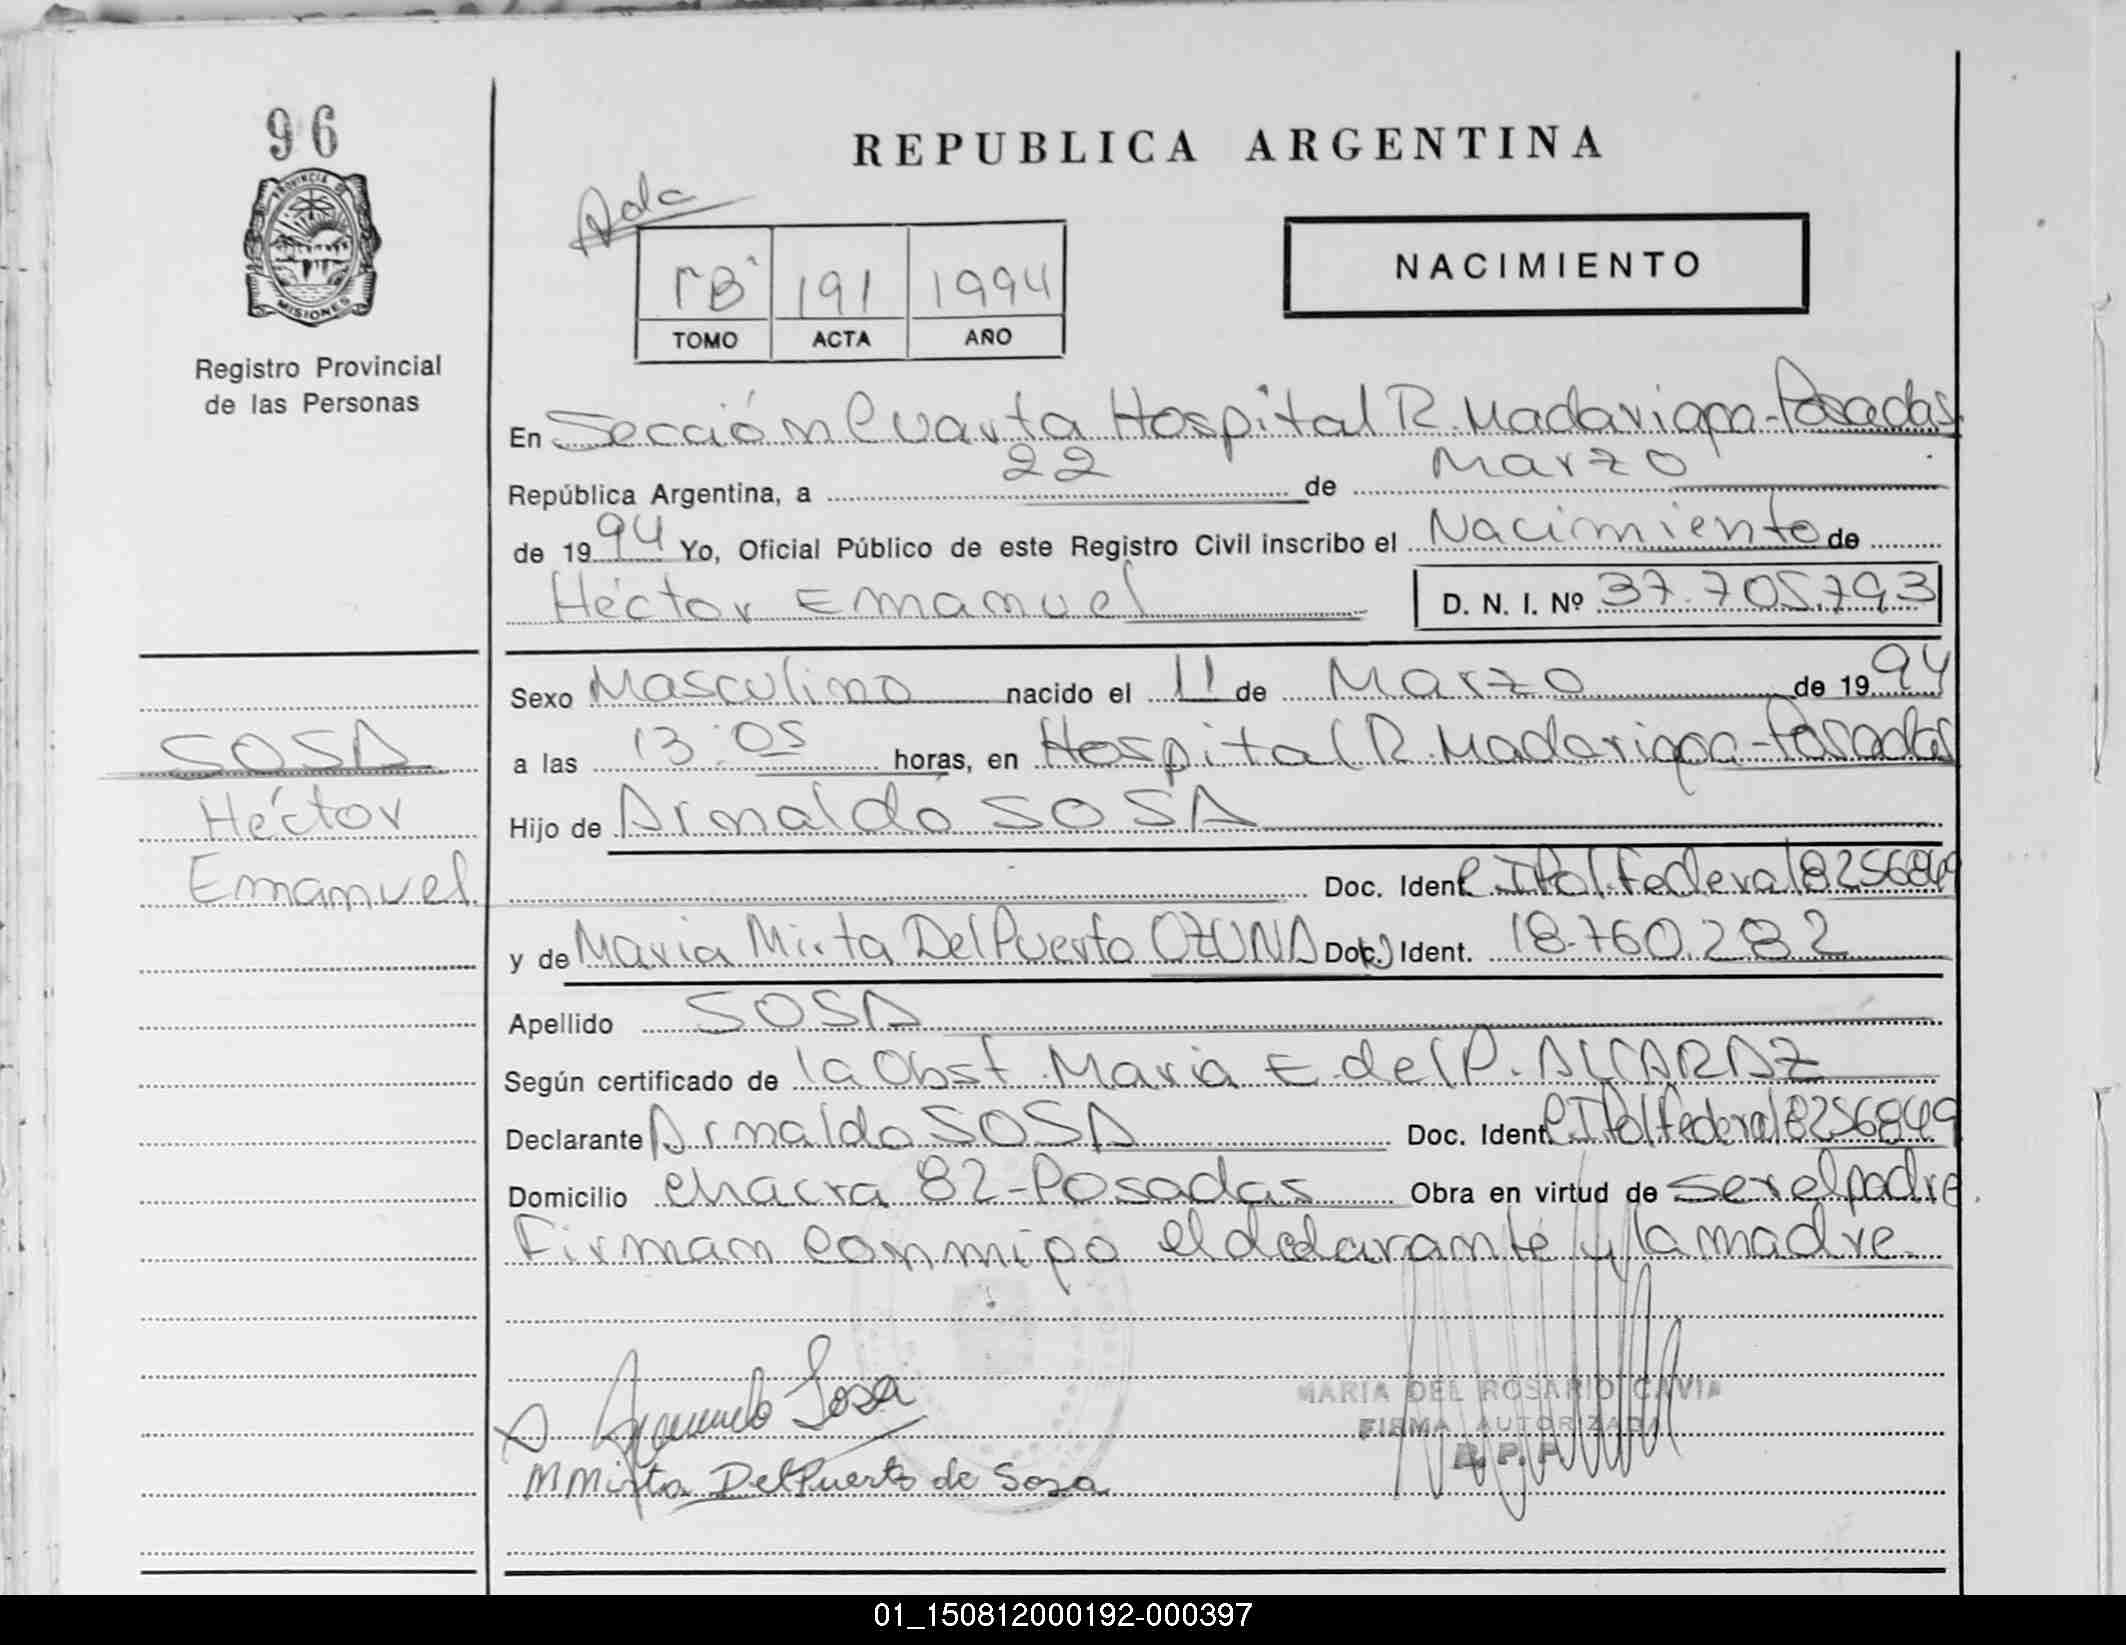 96
REPUBLICA ARGENTINA
PROVINCIA DE
MISIONES
Registro Provincial
de las Personas
"B" 191 1994
TOMO ACTA AÑO
NACIMIENTO
En Sección Cuarta Hospital R. Madariaga - Posadas
República Argentina, a 22 de Marzo
de 1994 Yo, Oficial Público de este Registro Civil inscribo el Nacimiento de
Héctor Emanuel D. N. I. Nº 37.705.793
Sexo Masculino nacido el 11 de Marzo de 1994
SOSA
a las 13:05 horas, en Hospital R. Madariaga - Posadas
Héctor
Hijo de Arnaldo SOSA
Emanuel
Doc. Ident. C.I Pol. Federal 8256849
y de Maria Mirta Del Puerto OZUNA Doc. Ident. 18.760.282
Apellido SOSA
Según certificado de la Obst. Maria E. del P. ALCARAZ
Declarante Arnaldo SOSA Doc. Ident. C.I Pol Federal 8256849
Domicilio chacra 82 - Posadas Obra en virtud de ser el padre
Firman conmigo el declarante y la madre
Sosa
M Mirta Del Puerto de Sosa
MARIA DEL ROSARIO CAVIA
FIRMA AUTORIZADA
R. P. P.
01_150812000192-000397